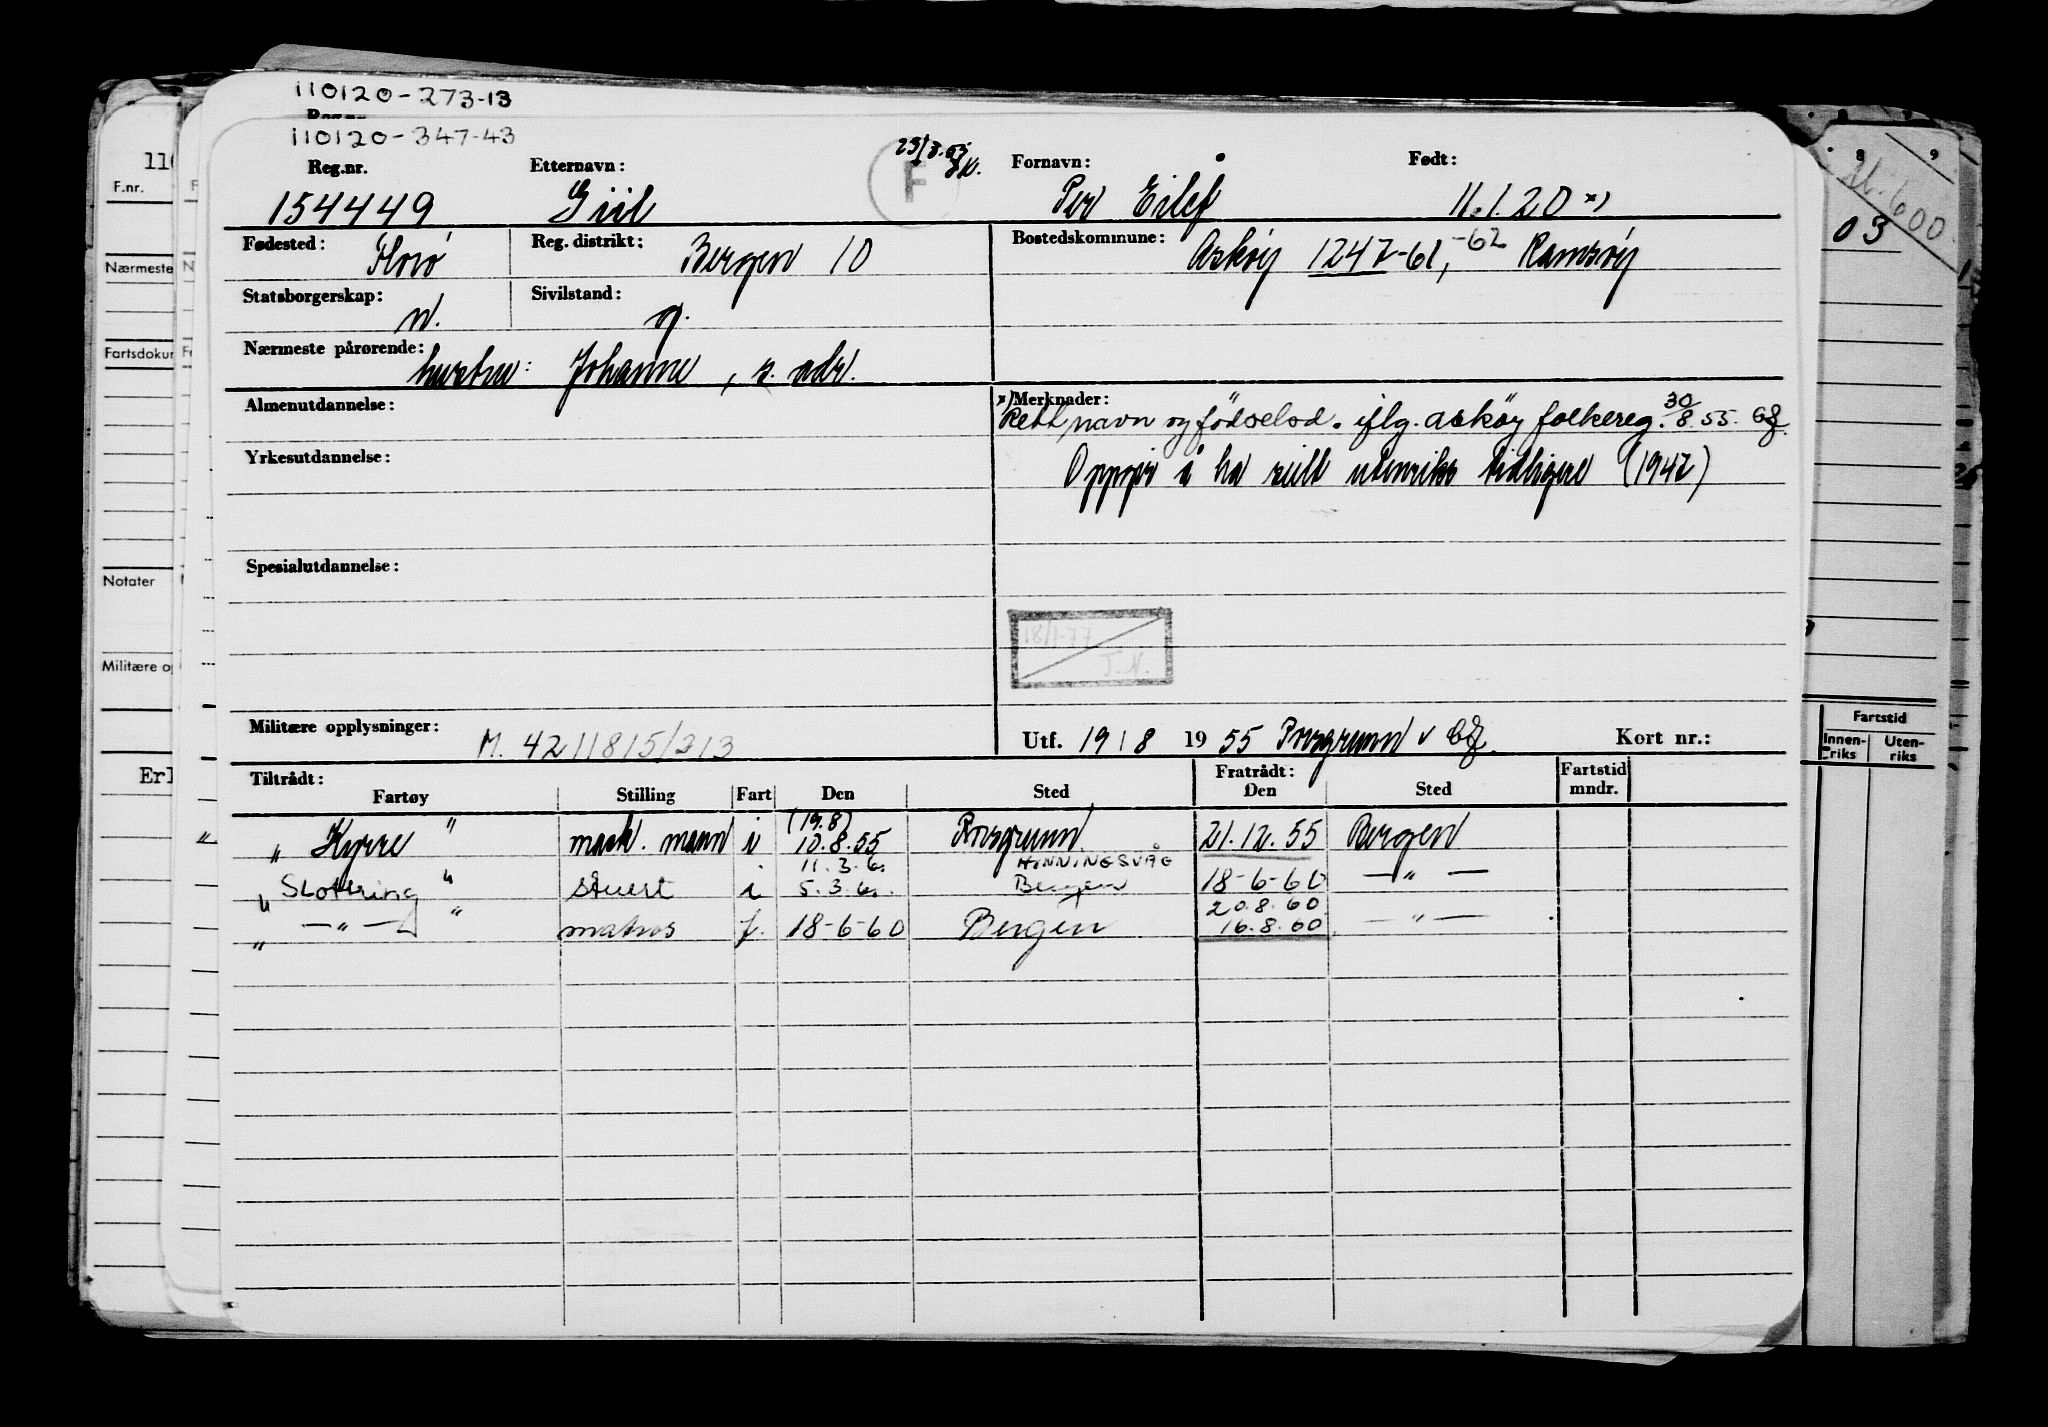 110120-273-13
110120-347-43
23/3.63
F
Reg.nr. Etternavn: Fornavn: Født:
154449 Giil Per Eilef 11.1.20 x)
Fødested: Florø Reg. distrikt: Bergen 10 Bostedskommune: Askøy 1247-61, -62 Ramsøy
Statsborgerskap: n. Sivilstand: g.
Nærmeste pårørende: hustru: Johanne, s. adr.
Almenutdannelse: Merknader:
x) Rett navn og födselsd. iflg. Askøy folkereg. 30/8.55. GJ.
Yrkesutdannelse: Oppgir å ha seilt utenriks tidligere (1947)
Spesialutdannelse:
18/1-77
T.N.
Militære opplysninger: M. 4211815/313 Utf. 19/8 1955 Porsgrunn Kort nr.:
Tiltrådt: Fratrådt: Fartstid
Fartøy Stilling Fart Den Sted Den Sted mndr.
(19.8)
"Kyrre" mask. mann i 10.8.55 Porsgrunn 21.12.55 Bergen
11.3.60 HONNINGSVÅG
"Slotering" stuert i 5.3.60. Bergen 18-6-60 — " —
20.8.60
" — " — " matros f. 18-6-60 Bergen 16.8.60 — " —
110
F.nr.
Nærmeste
Fartsdokum
Notater
Militære op
Erl
8 9
600
03
Fartstid
Innen-
riks
Uten-
riks